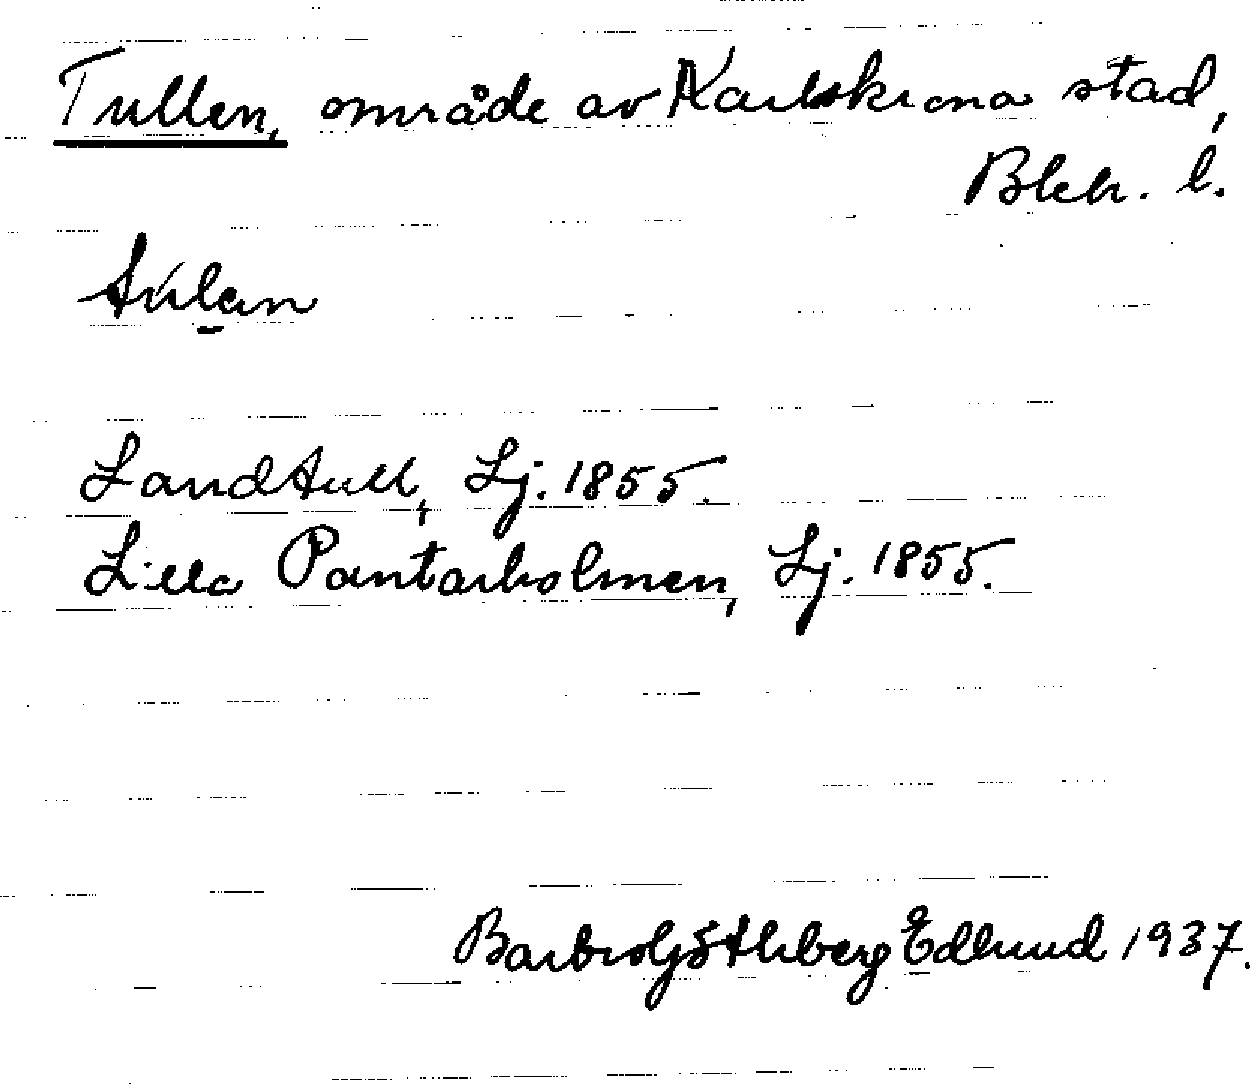 Tullen, område av Karlskrona stad,
Blek. l.
Landtull, Lj. 1855.
Lilla Pantarholmen, Lj. 1855.
Barbro Göthberg Edlund 1937.